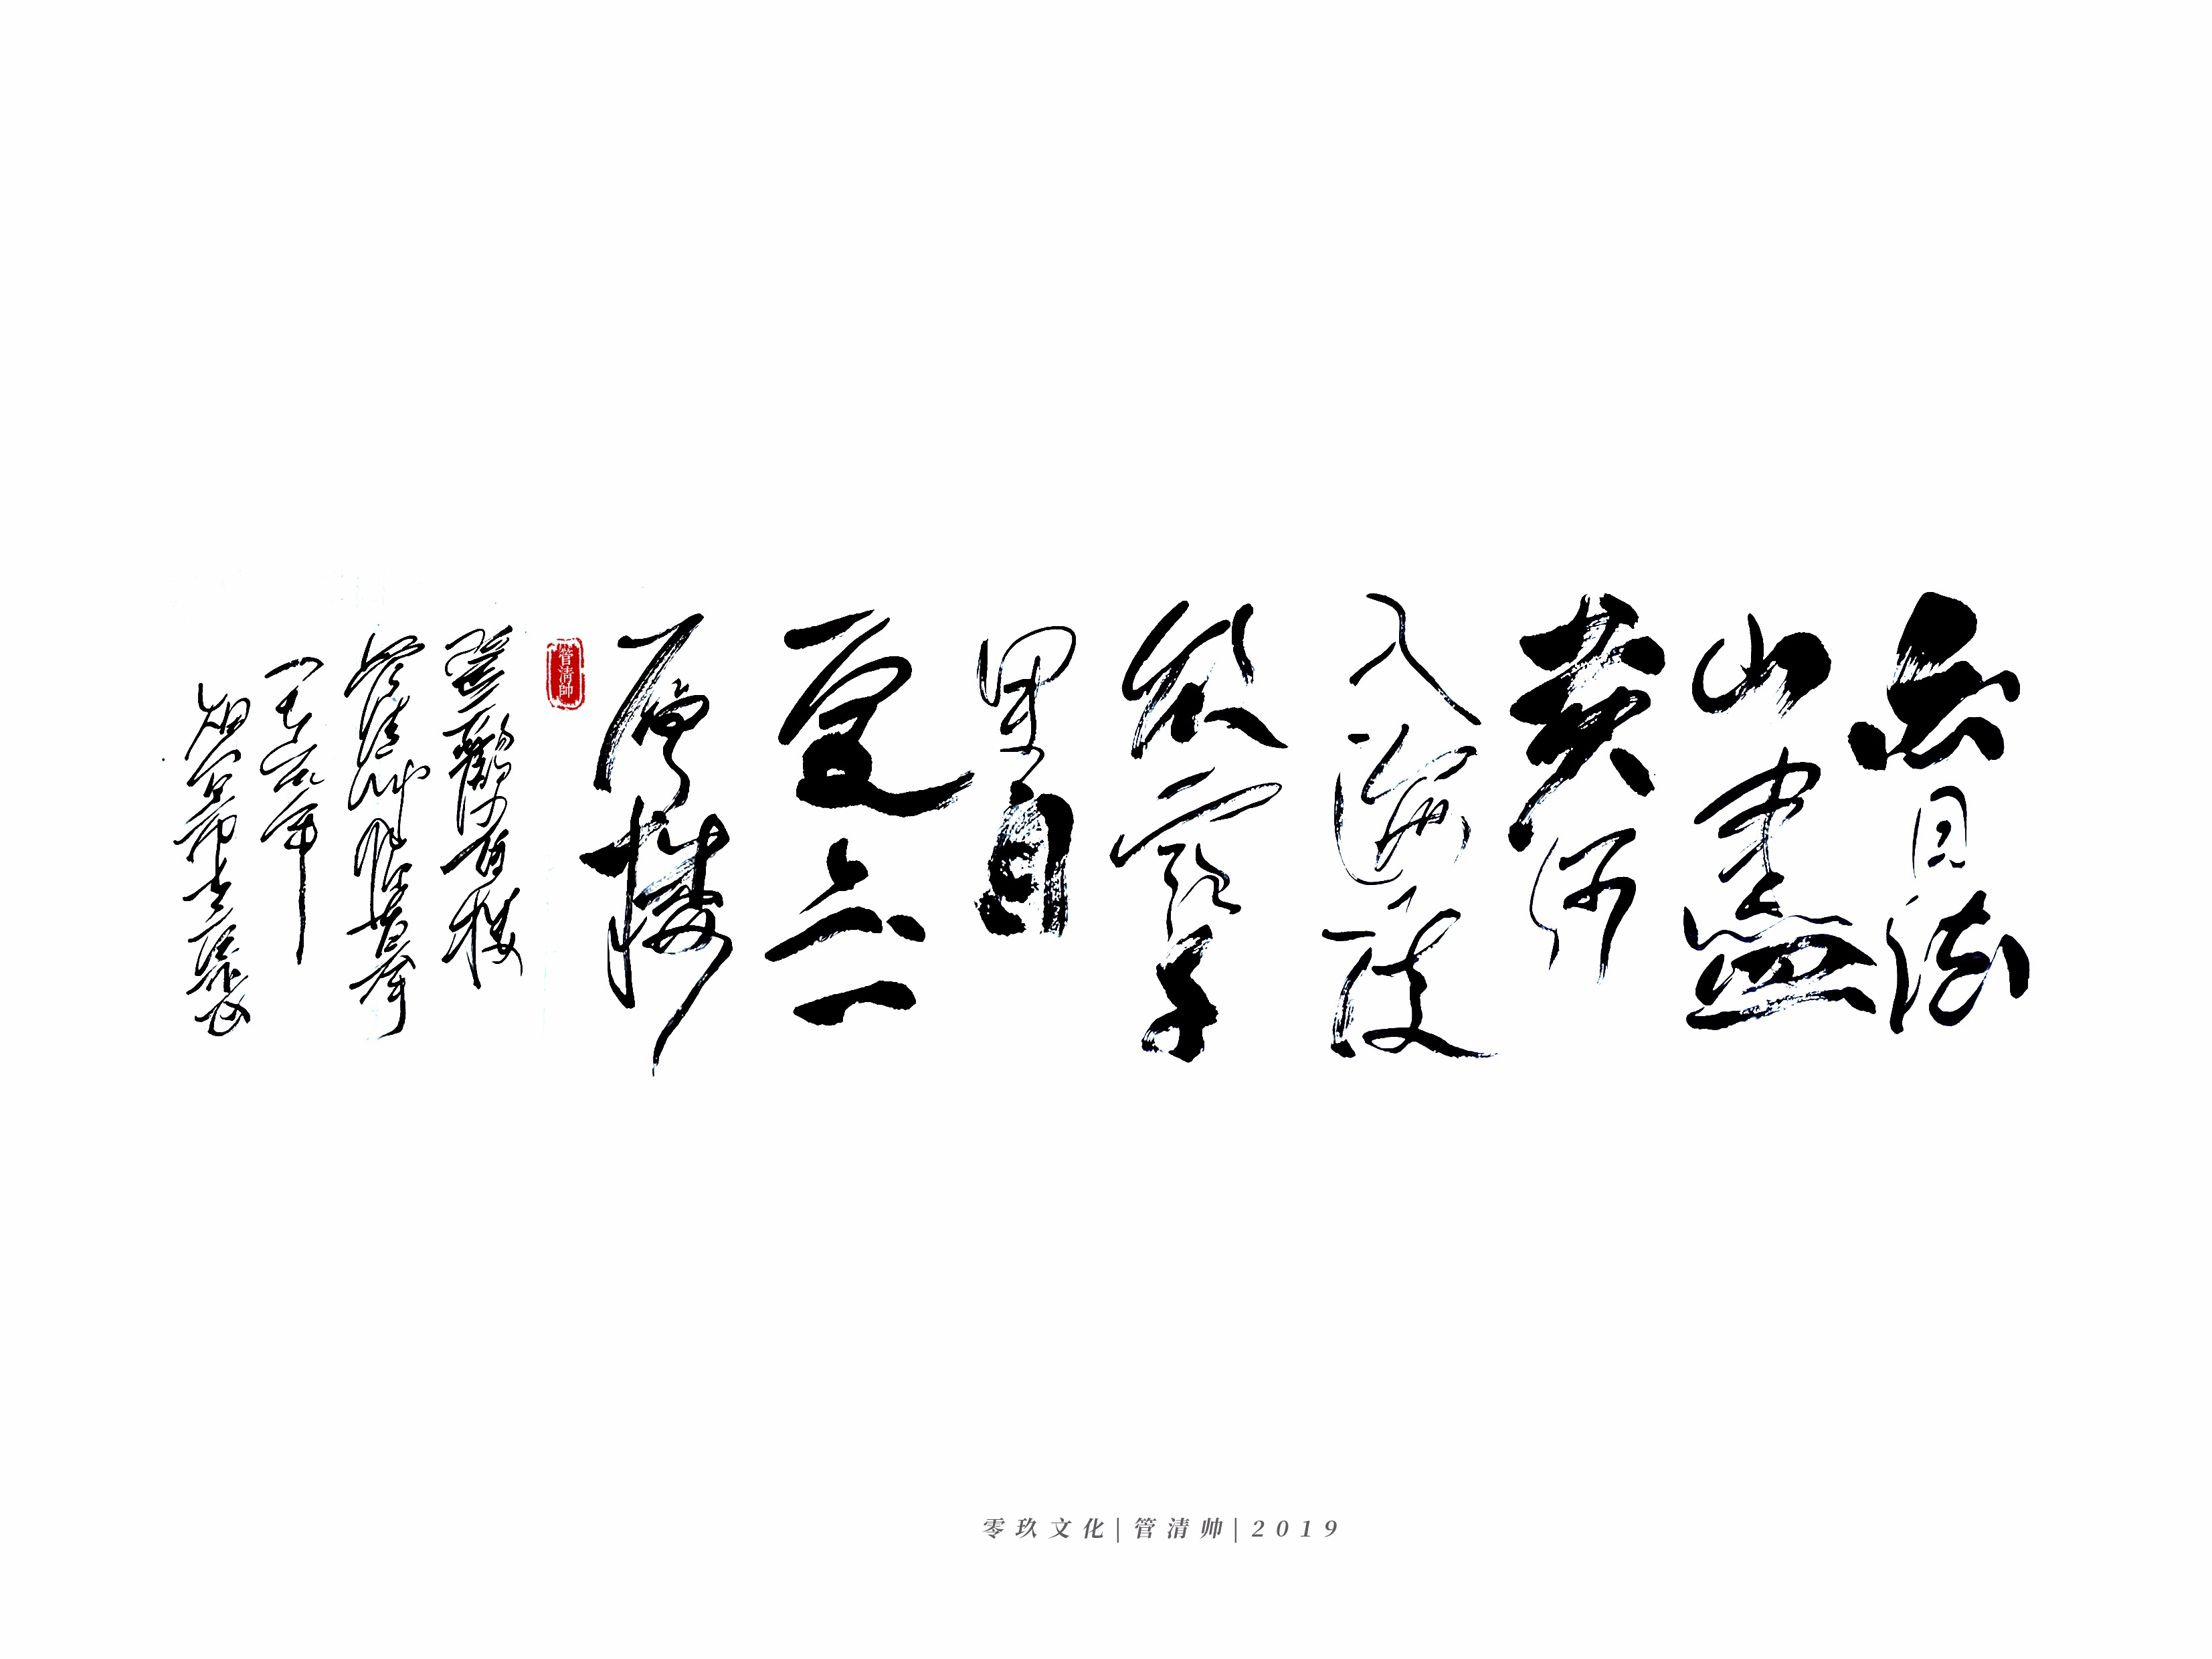 白日依
山盡
黄河
入海流
欲窮千
里目
更上一
層樓
管清帥
登鸛雀樓
管清帅
零玖文化|管清帅|2019